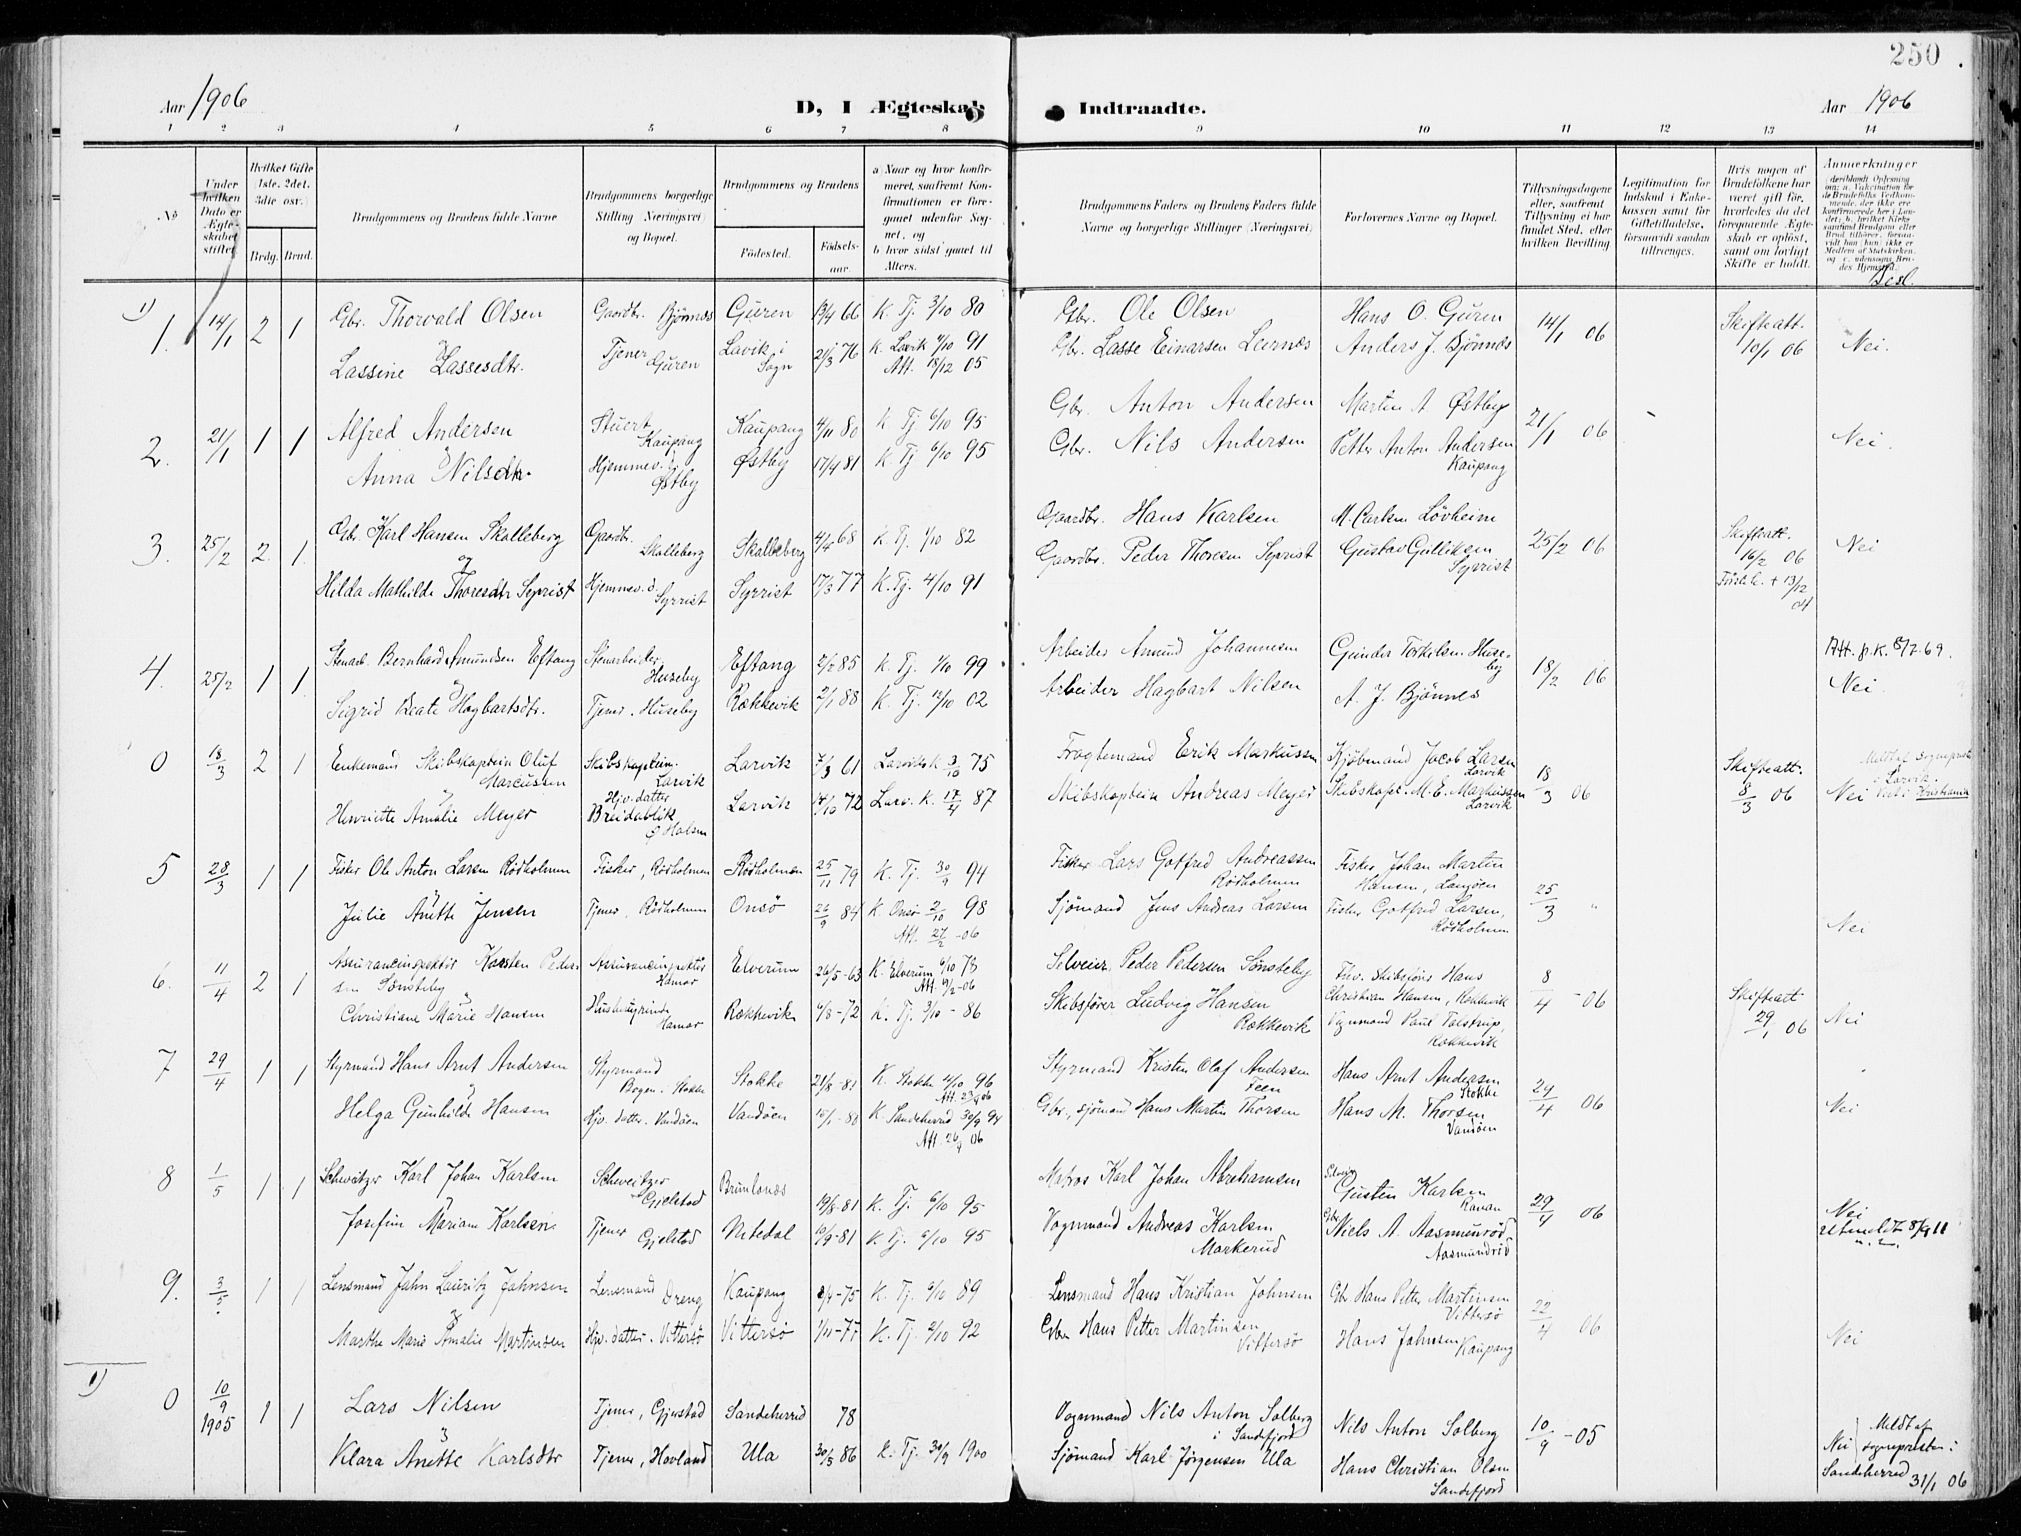 250
Aar 1906
D, I Ægteskab
Indtraadte.
Aar 1906
1 2 3 4 5 6 7 8
9 10 11 12 13 14
No
Under hvilken Dato er Ægteskabet stiftet.
Hvilket Gifte (1ste, 2det, 3die osv.)
Brdg. Brud.
Brudgommens og Brudens fulde Navne
Brudgommens borgerlige Stilling (Næringsvei) og Bopæl.
Brudgommens og Brudens
Fødested.
Fødselsaar.
a Naar og hvor konfirmeret, saafremt Konfirmationen er foregaaet udenfor Sognet, og
b hvor sidst gaaet til Alters.
Brudgommens Faders og Brudens Faders fulde Navne og borgerlige Stillinger (Næringsvei)
Forlovernes Navne og Bopæl.
Tillysningsdagene eller, saafremt Tillysning ei har fundet Sted, efter hvilken Bevilling
Legitimation for Indskud i Enkekassen samt for Giftetilladelse, forsaavidt saadan tiltrænges.
Hvis nogen af Brudefolkene har været gift før, hvorledes da det foregaaende Ægteskab er opløst, samt om lovligt Skifte er holdt.
Anmerkninger
Besl.
1) 1. 14/1 2 1 Gbr. Thorvald Olsen Gaardbr. Bjönnes Guren 13/4 66 K. Tj. 3/10 80 Gbr. Ole Olsen Hans O. Guren 14/1 06 Skifteatt. 10/1 06 Nei.
Lassine Lassesdtr. Tjener Guren Lavik i Sogn 21/3 76 K. Lavik 4/10 91 Att. 18/12 05 Gbr. Lasse Einarsen Leirnes Anders J. Bjönnes
2. 21/1 1 1 Alfred Andersen Stuert Kaupang Kaupang 4/11 80 K. Tj. 6/10 95 Gbr. Anton Andersen Martin A. Østby 21/1 06 Nei
Anna Nilsdtr. Hjemmev. d. Østby Østby 17/4 81 K. Tj. 6/10 95 Gbr. Nils Andersen Petter Anton Andersen Kaupang
3. 25/2 2 1 Gbr. Karl Hansen Skalleberg Gaardbr. Skalleberg Skalleberg 4/4 68 K. Tj. 1/10 82 Gaardbr. Hans Karlsen M. Carlsen Lövheim 25/2 06 Skifteatt. 16/2 06 Nei
og
Hilda Mathilde Thoresdtr Syrrist Hjemmev. d. Syrrist Syrrist 17/3 77 K. Tj. 4/10 91 Gaardbr. Peder Thoresen Syrrist Gustav Gulliksen Syrrist 13/12 04
4. 25/2 1 1 Stenarb. Bernhard Amundsen Eftang Stenarbeider Huseby Eftang 2/7 85 K. Tj. 1/10 99 Arbeider Amund Johannesen Gunder Torkelsen Huseby 18/2 06 Att. p. K. 8/7 69. Nei
Sigrid Beate Hagbartsdtr. Tjener. Huseby Rækkevik 2/1 88 K. Tj. 12/10 02 Arbeider Hagbart Nilsen A. J. Bjönnes
0 18/3 2 1 Enkemand Skibskaptein Oluf Marcussen Skibskaptein. Larvik Larvik 7/3 61 Larviks k. 3/10 75 Fragtemand Erik Markussen Kjöbmand Jacob Larsen Larvik 18/3 06 Skifteatt. 8/3 06 Nei
Henriette Amalie Meyer Hjv. datter Breidablik Ø Halsen Larvik 14/10 72 Larv. K. 17/4 87 Skibskaptein Andreas Meyer Skibskapt. M. E. Markussen Larvik
5 28/3 1 1 Fisker Ole Anton Larsen Rödholmen Fisker, Rödholmen Rödholmen 25/11 79 K. Tj. 30/9 94 Fisker Lars Gotfred Andreassen Rödholmen Fisker Johan Martin Hansen, Langöen 25/3 " Nei
Julie Anette Jensen Tjener. Rödholmen Onsö 26/9 84 K. Onsö 2/10 98 Att. 27/2 -06 Sjömand Jens Andreas Larsen Fisker Gotfred Larsen, Rödholmen
6. 11/4 2 1 Assuranceinspektör Karsten Pedersen Sönsteby Assuranceinspektör Hamar Elverum 26/5-63 K. Elverum 6/10 78 Att. 9/2-06 Selveier Peder Pedersen Sönsteby Fhv. Skibsförer Hans Christian Hansen, Rækkevik 8/4 - 06 Skifteatt 29/1 06 Nei
Christiane Marie Hansen Husbestyrinde Hamar Rækkevik 6/8-72 K. Tj. 3/10 - 86 Skibsförer Ludvig Hansen Rækkevik Vognmand Paul Talstrup, Rækkevik
7 29/4 1 1 Styrmand Hans Arnt Andersen Styrmand Bogen i Stokke Stokke 21/8-81 K. Stokke 4/10 96 Styrmand Kristen Olaf Andersen Feen Hans Arnt Andersen Stokke 24/4 06 Nei
Helga Gunhilde Hansen Hjv. datter. Vandöen Vandöen 10/1-80 K. Sandeherred 30/9 94 Att. 26/4 06 Gbr., sjömand Hans Martin Thorsen Hans M. Thorsen Vandöen
8 1/5 1 1 Schveitzer Karl Johan Karlsen Schveitzer Gjelstad Brunlanes 19/8-81 K. Tj. 6/10 95 Matros Karl Johan Abrahamsen Gusten Karlsen Ravan 29/4 06 Nei
Josefine Mariane Karlsen Tjener Gjelstad Nitedal 10/9-81 K. Tj. 6/10 95 Vognmand Andreas Karlsen Markerud Gbr Niels A. Aasmundröd Aasmundröd Utmeldt 8/9 11
9. 3/5 1 1 Lensmand Jahn Lauritz Jahnsen Lensmand Dreng Kaupang 8/4-75 K. Tj. 6/10 89 Lensmand Hans Kristian Johnsen Gbr Hans Petter Martinsen Vittersö 22/4 06 Nei
Marthe Marie Amalie Martinsen Hjv. datter. Vittersö Vittersö 1/11-77 K. Tj. 2/10 92 Gbr Hans Petter Martinsen Vittersö Hans Jahnsen Kaupang
1) 0 10/9 1905 1 1 Lars Nilsen Tjener, Gjerstad Sandeherred 78 Vognmand Nils Anton Solberg i Sandefjord Nils Anton Solberg 10/9 - 05 Nei Meldt af sogneprest i Sandeherred 31/1 06
Klara Anette Karlsdtr Tjener, Hovland Ula 30/5 86 K. Tj. 30/9 1900 Sjömand Karl Jörgensen Ula Hans Christian Olsen Sandefjord